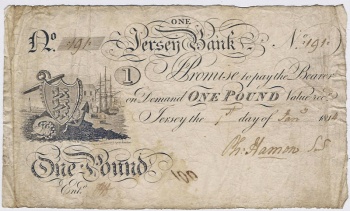 ONE
No. 191 Jersey Bank No. 191
1 I Promise to pay the Bearer
on Demand ONE POUND Value recd.
Jersey the 1st day of Jany.
One Pound
Entd.